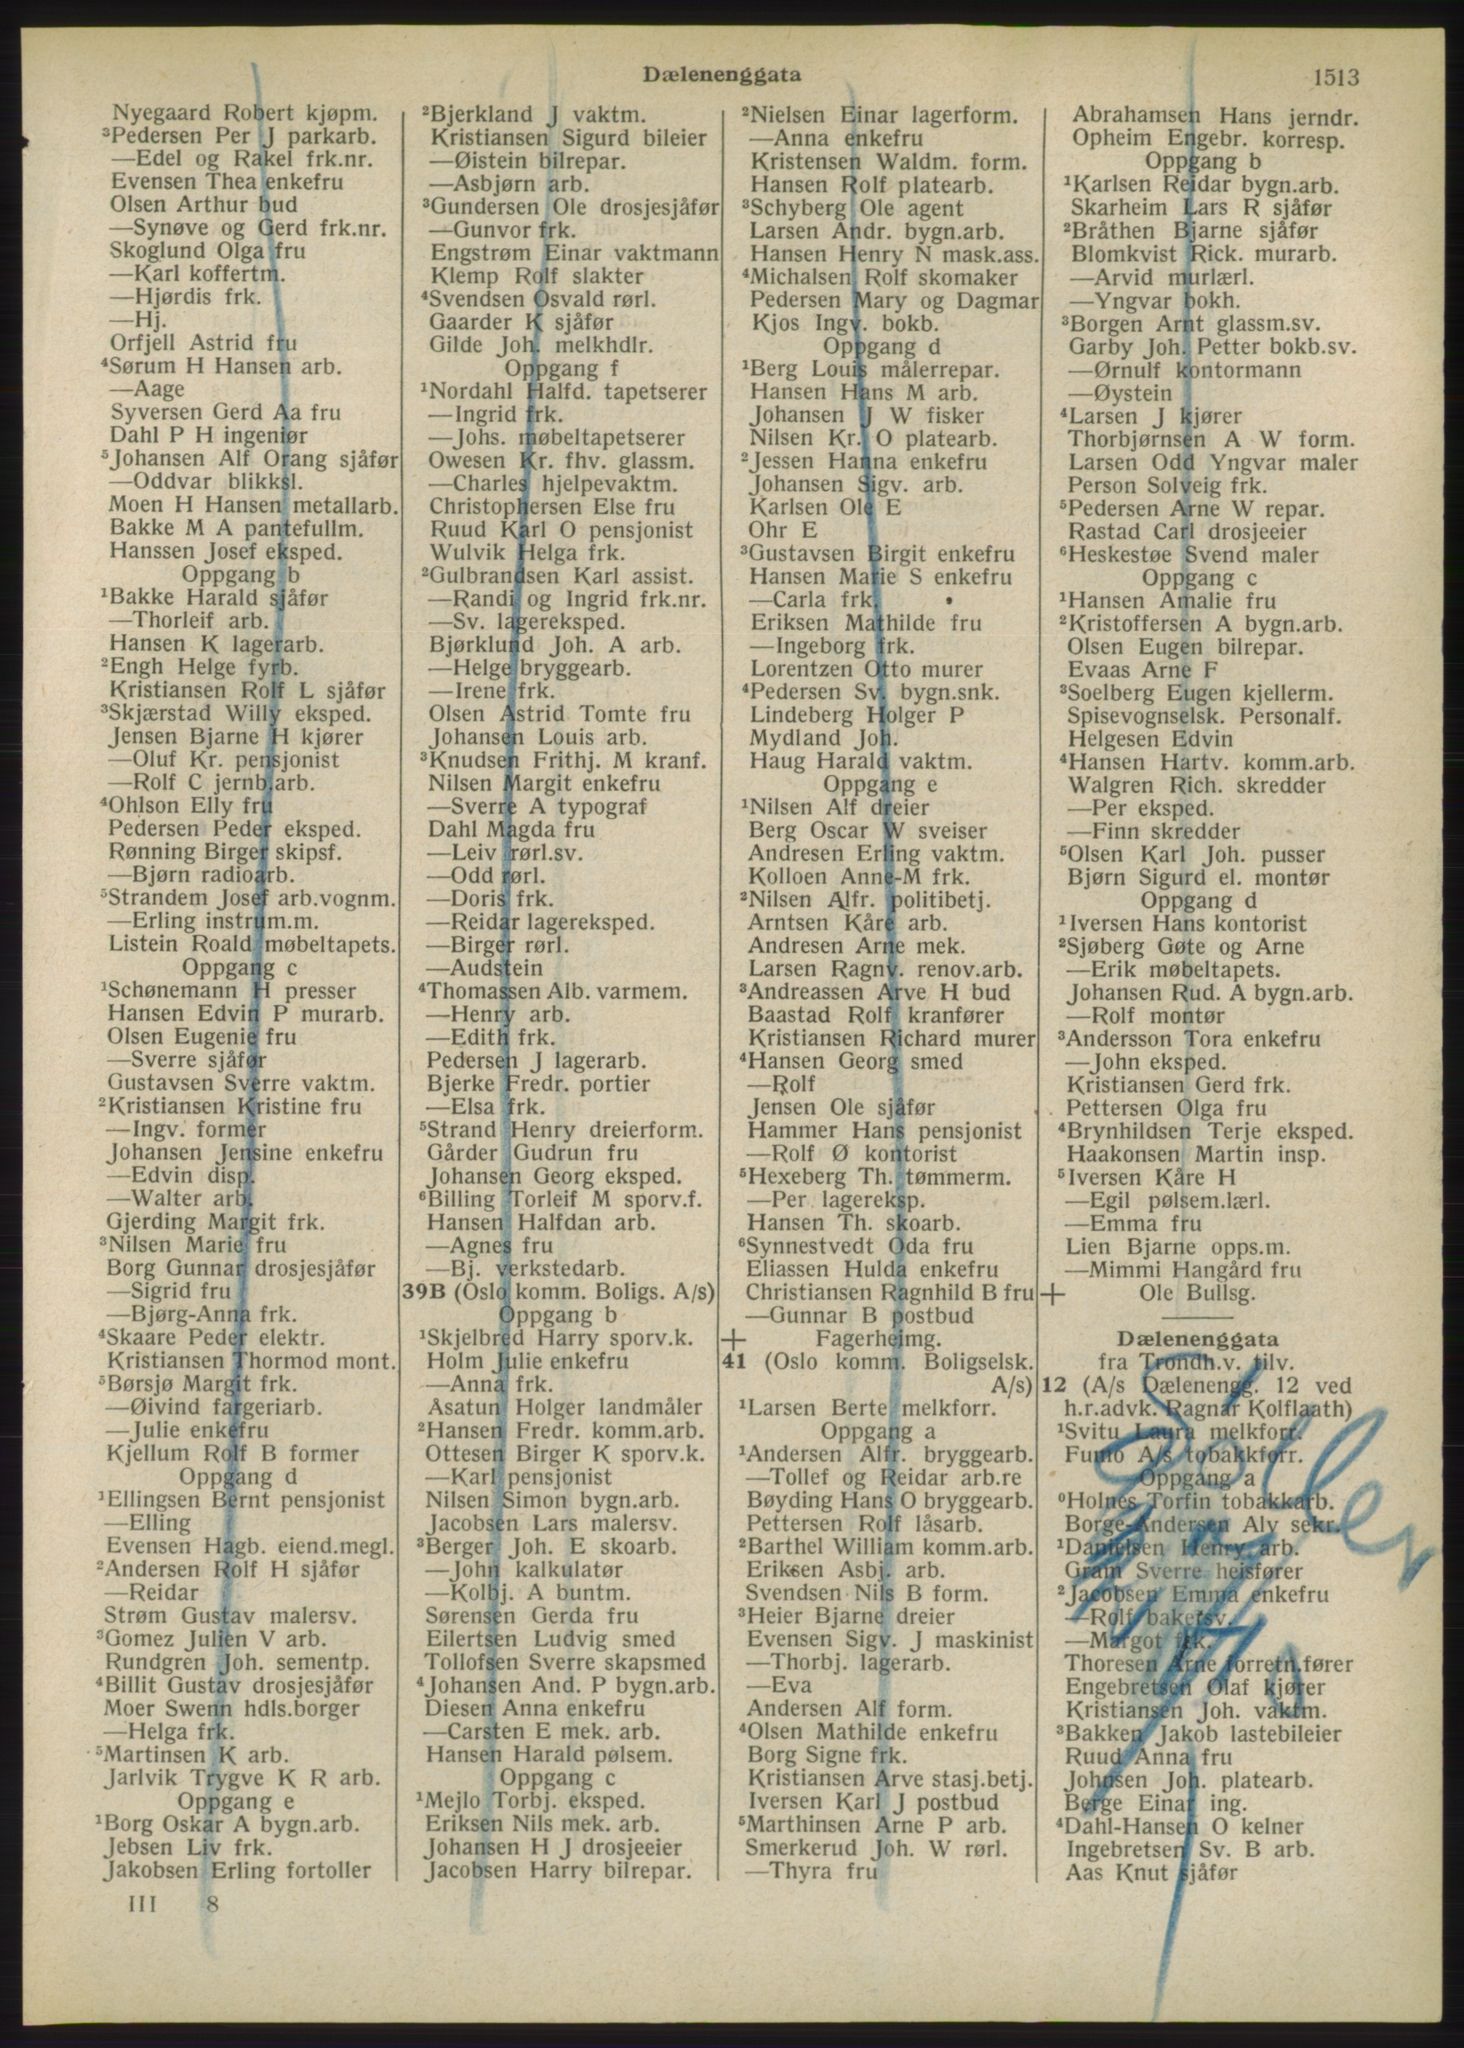 Dælenenggata
1513
Nyegaard Robert kjøpm.
³Pedersen Per J parkarb.
—Edel og Rakel frk.nr.
Evensen Thea enkefru
Olsen Arthur bud
—Synøve og Gerd frk.nr.
Skoglund Olga fru
—Karl koffertm.
—Hjørdis frk.
—Hj.
Orfjell Astrid fru
⁴Sørum H Hansen arb.
—Aage
Syversen Gerd Aa fru
Dahl P H ingeniør
⁵Johansen Alf Orang sjåfør
—Oddvar blikksl.
Moen H Hansen metallarb.
Bakke M A pantefullm.
Hanssen Josef eksped.
Oppgang b
¹Bakke Harald sjåfør
—Thorleif arb.
Hansen K lagerarb.
²Engh Helge fyrb.
Kristiansen Rolf L sjåfør
³Skjærstad Willy eksped.
Jensen Bjarne H kjører
—Oluf Kr. pensjonist
—Rolf C jernb.arb.
⁴Ohlson Elly fru
Pedersen Peder eksped.
Rønning Birger skipsf.
—Bjørn radioarb.
⁵Strandem Josef arb.vognm.
—Erling instrum.m.
Listein Roald møbeltapets.
Oppgang c
¹Schønemann H presser
Hansen Edvin P murarb.
Olsen Eugenie fru
—Sverre sjåfør
Gustavsen Sverre vaktm.
²Kristiansen Kristine fru
—Ingv. former
Johansen Jensine enkefru
—Edvin disp.
—Walter arb.
Gjerding Margit frk.
³Nilsen Marie fru
Borg Gunnar drosjesjåfør
—Sigrid fru
—Bjørg-Anna frk.
⁴Skaare Peder elektr.
Kristiansen Thormod mont.
⁵Børsjø Margit frk.
—Øivind fargeriarb.
—Julie enkefru
Kjellum Rolf B former
Oppgang d
¹Ellingsen Bernt pensjonist
—Elling
Evensen Hagb. eiend.megl.
²Andersen Rolf H sjåfør
—Reidar
Strøm Gustav malersv.
³Gomez Julien V arb.
Rundgren Joh. sementp.
⁴Billit Gustav drosjesjåfør
Moer Swenn hdls.borger
—Helga frk.
⁵Martinsen K arb.
Jarlvik Trygve K R arb.
Oppgang e
¹Borg Oskar A bygn.arb.
Jebsen Liv frk.
Jakobsen Erling fortoller
III 8
²Bjerkland J vaktm.
Kristiansen Sigurd bileier
—Øistein bilrepar.
—Asbjørn arb.
³Gundersen Ole drosjesjåfør
—Gunvor frk.
Engstrøm Einar vaktmann
Klemp Rolf slakter
⁴Svendsen Osvald rørl.
Gaarder K sjåfør
Gilde Joh. melkhdlr.
Oppgang f
¹Nordahl Halfd. tapetserer
—Ingrid frk.
—Johs. møbeltapetserer
Owesen Kr. fhv. glassm.
—Charles hjelpevaktm.
Christophersen Else fru
Ruud Karl O pensjonist
Wulvik Helga frk.
²Gulbrandsen Karl assist.
—Randi og Ingrid frk.nr.
—Sv. lagereksped.
Bjørklund Joh. A arb.
—Helge bryggearb.
—Irene frk.
Olsen Astrid Tomte fru
Johansen Louis arb.
³Knudsen Frithj. M kranf.
Nilsen Margit enkefru
—Sverre A typograf
Dahl Magda fru
—Leiv rørl.sv.
—Odd rørl.
—Doris frk.
—Reidar lagereksped.
—Birger rørl.
—Audstein
⁴Thomassen Alb. varmem.
—Henry arb.
—Edith frk.
Pedersen J lagerarb.
Bjerke Fredr. portier
—Elsa frk.
⁵Strand Henry dreierform.
Gårder Gudrun fru
Johansen Georg eksped.
⁶Billing Torleif M sporv.f.
Hansen Halfdan arb.
—Agnes fru
—Bj. verkstedarb.
39B (Oslo komm. Boligs. A/s)
Oppgang b
¹Skjelbred Harry sporv.k.
Holm Julie enkefru
—Anna frk.
Asatun Holger landmåler
²Hansen Fredr. komm.arb.
Ottesen Birger K sporv.k.
—Karl pensjonist
Nilsen Simon bygn.arb.
Jacobsen Lars malersv.
³Berger Joh. E skoarb.
—John kalkulatør
—Kolbj. A buntm.
Sørensen Gerda fru
Eilertsen Ludvig smed
Tollofsen Sverre skapsmed
⁴Johansen And. P bygn.arb.
Diesen Anna enkefru
—Carsten E mek. arb.
Hansen Harald pølsem.
Oppgang c
¹Mejlo Torbj. eksped.
Eriksen Nils mek. arb.
Johansen H J drosjeeier
Jacobsen Harry bilrepar.
²Nielsen Einar lagerform.
—Anna enkefru
Kristensen Waldm. form.
Hansen Rolf platearb.
³Schyberg Ole agent
Larsen Andr. bygn.arb.
Hansen Henry N mask.ass.
⁴Michalsen Rolf skomaker
Pedersen Mary og Dagmar
Kjos Ingv. bokb.
Oppgang d
¹Berg Louis målerrepar.
Hansen Hans M arb.
Johansen J W fisker
Nilsen Kr. O platearb.
²Jessen Hanna enkefru
Johansen Sigv. arb.
Karlsen Ole E
Ohr E
³Gustavsen Birgit enkefru
Hansen Marie S enkefru
—Carla frk.
Eriksen Mathilde fru
—Ingeborg frk.
Lorentzen Otto murer
⁴Pedersen Sv. bygn.snk.
Lindeberg Holger P
Mydland Joh.
Haug Harald vaktm.
Oppgang e
¹Nilsen Alf dreier
Berg Oscar W sveiser
Andresen Erling vaktm.
Kolloen Anne-M frk.
²Nilsen Alfr. politibetj.
Arntsen Kåre arb.
Andresen Arne mek.
Larsen Ragnv. renov.arb.
³Andreassen Arve H bud
Baastad Rolf kranfører
Kristiansen Richard murer
⁴Hansen Georg smed
—Rolf
Jensen Ole sjåfør
Hammer Hans pensjonist
—Rolf Ø kontorist
⁵Hexeberg Th. tømmerm.
—Per lagereksp.
Hansen Th. skoarb.
⁶Synnestvedt Oda fru
Eliassen Hulda enkefru
Christiansen Ragnhild B fru
—Gunnar B postbud
+ Fagerheimg.
41 (Oslo komm. Boligselsk.
A/s)
¹Larsen Berte melkforr.
Oppgang a
¹Andersen Alfr. bryggearb.
—Tollef og Reidar arb.re
Bøyding Hans O bryggearb.
Pettersen Rolf låsarb.
²Barthel William komm.arb.
Eriksen Asbj. arb.
Svendsen Nils B form.
³Heier Bjarne dreier
Evensen Sigv. J maskinist
—Thorbj. lagerarb.
—Eva
Andersen Alf form.
⁴Olsen Mathilde enkefru
Borg Signe frk.
Kristiansen Arve stasj.betj.
Iversen Karl J postbud
⁵Marthinsen Arne P arb.
Smerkerud Joh. W rørl.
—Thyra fru
Abrahamsen Hans jerndr.
Opheim Engebr. korresp.
Oppgang b
¹Karlsen Reidar bygn.arb.
Skarheim Lars R sjåfør
²Bråthen Bjarne sjåfør
Blomkvist Rick. murarb.
—Arvid murlærl.
—Yngvar bokh.
³Borgen Arnt glassm.sv.
Garby Joh. Petter bokb.sv.
—Ørnulf kontormann
—Øystein
⁴Larsen J kjører
Thorbjørnsen A W form.
Larsen Odd Yngvar maler
Person Solveig frk.
⁵Pedersen Arne W repar.
Rastad Carl drosjeeier
⁶Heskestøe Svend maler
Oppgang c
¹Hansen Amalie fru
²Kristoffersen A bygn.arb.
Olsen Eugen bilrepar.
Evaas Arne F
³Soelberg Eugen kjellerm.
Spisevognselsk. Personalf.
Helgesen Edvin
⁴Hansen Hartv. komm.arb.
Walgren Rich. skredder
—Per eksped.
—Finn skredder
⁵Olsen Karl Joh. pusser
Bjørn Sigurd el. montør
Oppgang d
¹Iversen Hans kontorist
²Sjøberg Gøte og Arne
—Erik møbeltapets.
Johansen Rud. A bygn.arb.
—Rolf montør
³Andersson Tora enkefru
—John eksped.
Kristiansen Gerd frk.
Pettersen Olga fru
⁴Brynhildsen Terje eksped.
Haakonsen Martin insp.
⁵Iversen Kåre H
—Egil pølsem.lærl.
—Emma fru
Lien Bjarne opps.m.
—Mimmi Hangård fru
+ Ole Bullsg.
Dælenenggata
fra Trondh.v. tilv.
12 (A/s Dælenengg. 12 ved
h.r.advk. Ragnar Kolflaath)
¹Svitu Laura melkforr.
Fumo A/s tobakkforr.
Oppgang a
⁰Holnes Torfin tobakkarb.
Borge-Andersen Alv sekr.
¹Danielsen Henry arb.
Gram Sverre heisfører
²Jacobsen Emma enkefru
—Rolf bakersv.
—Margot frk.
Thoresen Arne forretn.fører
Engebretsen Olaf kjører
Kristiansen Joh. vaktm.
³Bakken Jakob lastebileier
Ruud Anna fru
Johnsen Joh. platearb.
Berge Einar ing.
⁴Dahl-Hansen O kelner
Ingebretsen Sv. B arb.
Aas Knut sjåfør